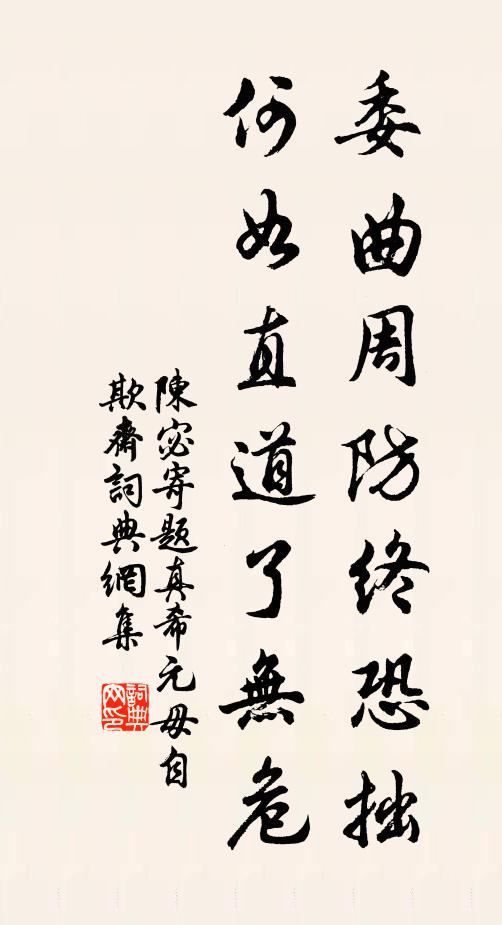 委曲周防終恐拙
何如直道了無危
陳宓寄題真希元毋自
欺齋詞典網集
詞典网印